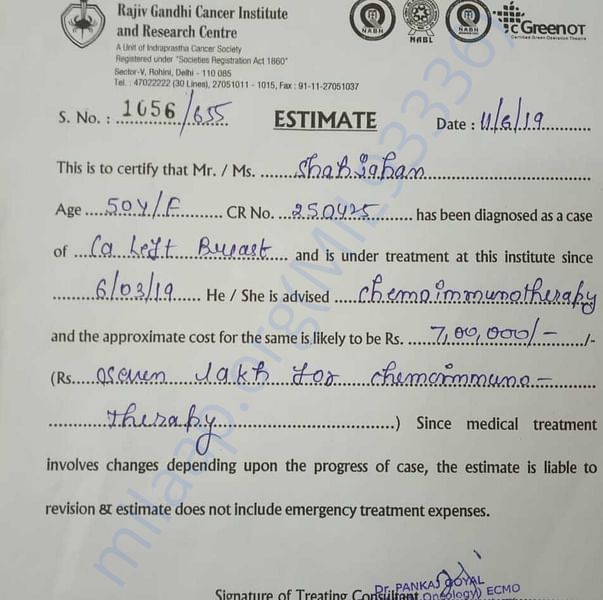 Rajiv Gandhi Cancer Institute
and Research Centre
A Unit of Indraprastha Cancer Society
Registered under "Societies Registration Act 1860"
Sector-V, Rohini, Delhi - 110 085
Tel. : 47022222 (30 Lines), 27051011 - 1015, Fax : 91-11-27051037
NABH
NABL
NABH
GreenOT
Certified Green Operation Theatre
S. No. : 1056/655
ESTIMATE
Date : 11/6/19
This is to certify that Mr. / Ms. Shahjahan
Age 50Y/F CR No. 250425 has been diagnosed as a case
of Ca Left Breast and is under treatment at this institute since
6/03/19 He / She is advised chemoimmunotherapy
and the approximate cost for the same is likely to be Rs. 7,00,000/- /-
(Rs. seven lakh for chemoimmuno-
therapy) Since medical treatment
involves changes depending upon the progress of case, the estimate is liable to
revision & estimate does not include emergency treatment expenses.
Dr. PANKAJ GOYAL
Signature of Treating Consultant Oncology) ECMO
milaap.org